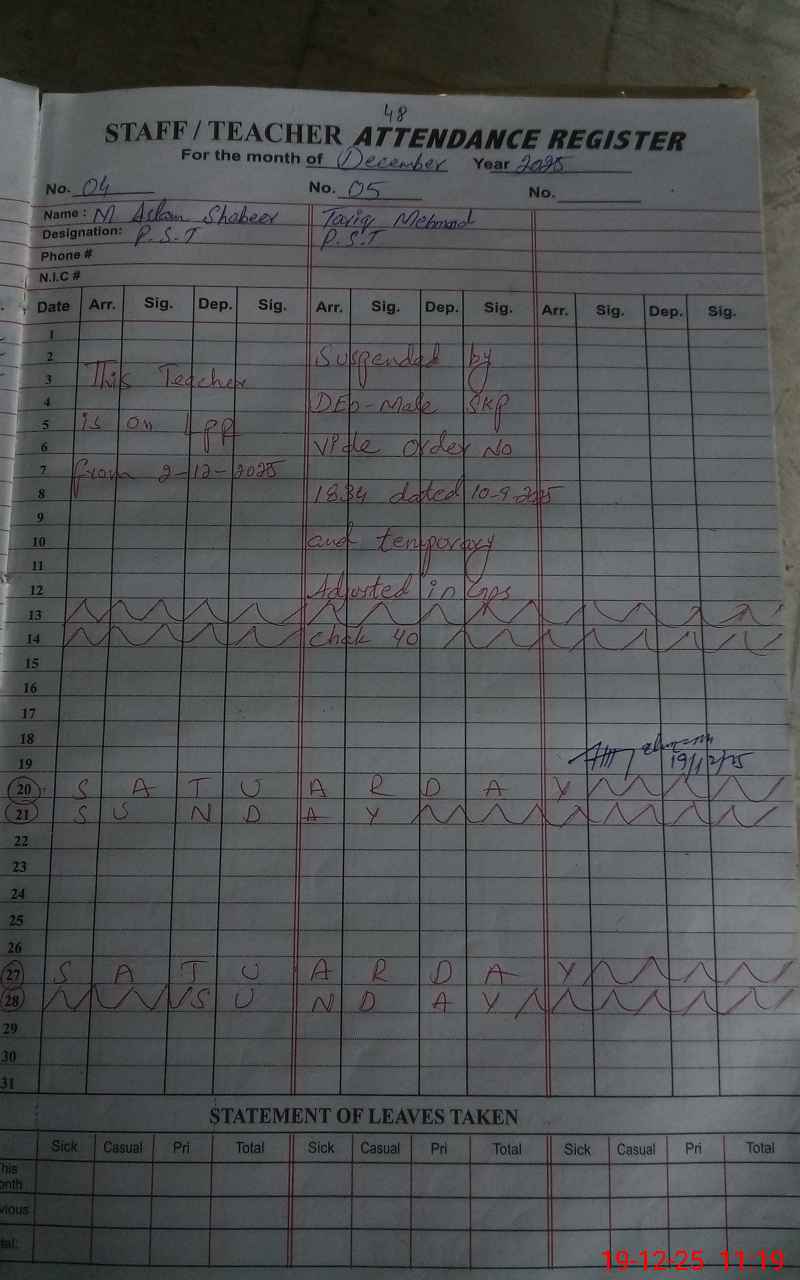 48
STAFF / TEACHER ATTENDANCE REGISTER
For the month of December Year 2025
No. 04 No. 05 No.
Name : M Aslam Shabeer Tariq Mehmood
Designation: P.S.T P.S.T
Phone #
N.I.C #
Date Arr. Sig. Dep. Sig. Arr. Sig. Dep. Sig. Arr. Sig. Dep. Sig.
1
2 Suspended by
3 This Teacher
4 DEO-Male SKP
5 is on LPR
6 vide order No
7 from 2-12-2025
8 1834 dated 10-9-2025
9
10 and temporary
11
12 Adjusted in Gps
13
14 chak 40
15
16
17
18
19 19/12/25
20 S A T U A R D A Y
21 S U N D A Y
22
23
24
25
26
27 S A T U A R D A Y
28 S U N D A Y
29
30
31
STATEMENT OF LEAVES TAKEN
Sick Casual Pri Total Sick Casual Pri Total Sick Casual Pri Total
his
onth
vious
tal:
19-12-25 11:19